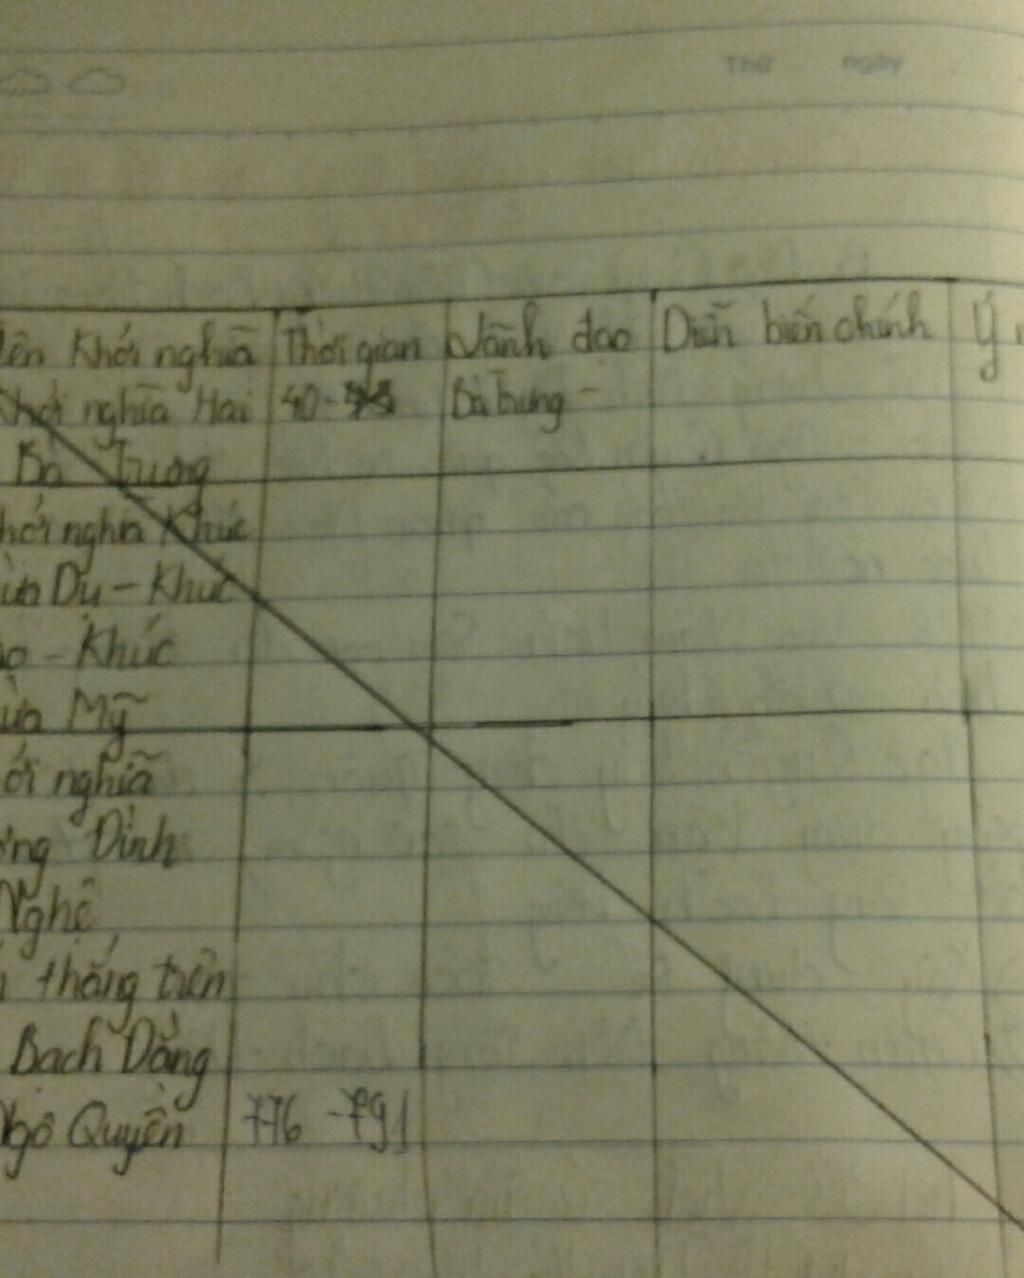 Thứ ngày
Tên Khởi nghĩa Thời gian Lãnh đạo Diễn biến chính Ý
Khởi nghĩa Hai 40- Bà trưng -
Bà Trưng
hởi nghĩa Khúc
ừa Dụ - Khúc
ạo - Khúc
ừa Mỹ
ởi nghĩa
ơng Đình
Nghệ
thắng trên
Bạch Đằng
Ngô Quyền 776 - 791